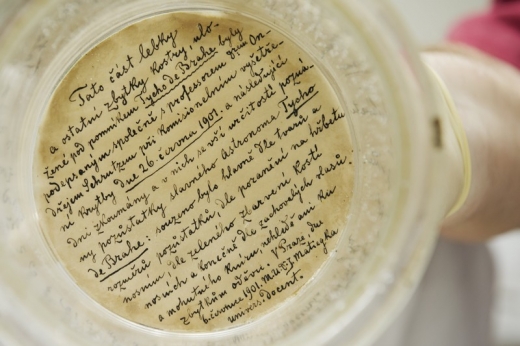 Tato část lebky
a ostatní zbytky kostry, ulo-
žené pod pomníkem Tycho de Brahe byly
podepsaným společně s professorem drem On-
dřejem Schrutzem při komisionelním vyšetře-
ní krypty dne 26. června 1901. a následující
dni zkoumány a v nich se vší určitostí pozná-
ny pozůstatky slavného Astronoma Tycho
de Brahe: souzeno bylo hlavně dle tvaru a
rozměrů pozůstatků, dle poranění na hřbetu
nosním, dle zeleného zbarvení kostí
nosních a konečně dle zachovalých vlasů
a mohutného kníru nehledě ani ku
zbytkům oděvu. V Praze, dne
6. července 1901. MUDr J Matiegka
univers. docent.